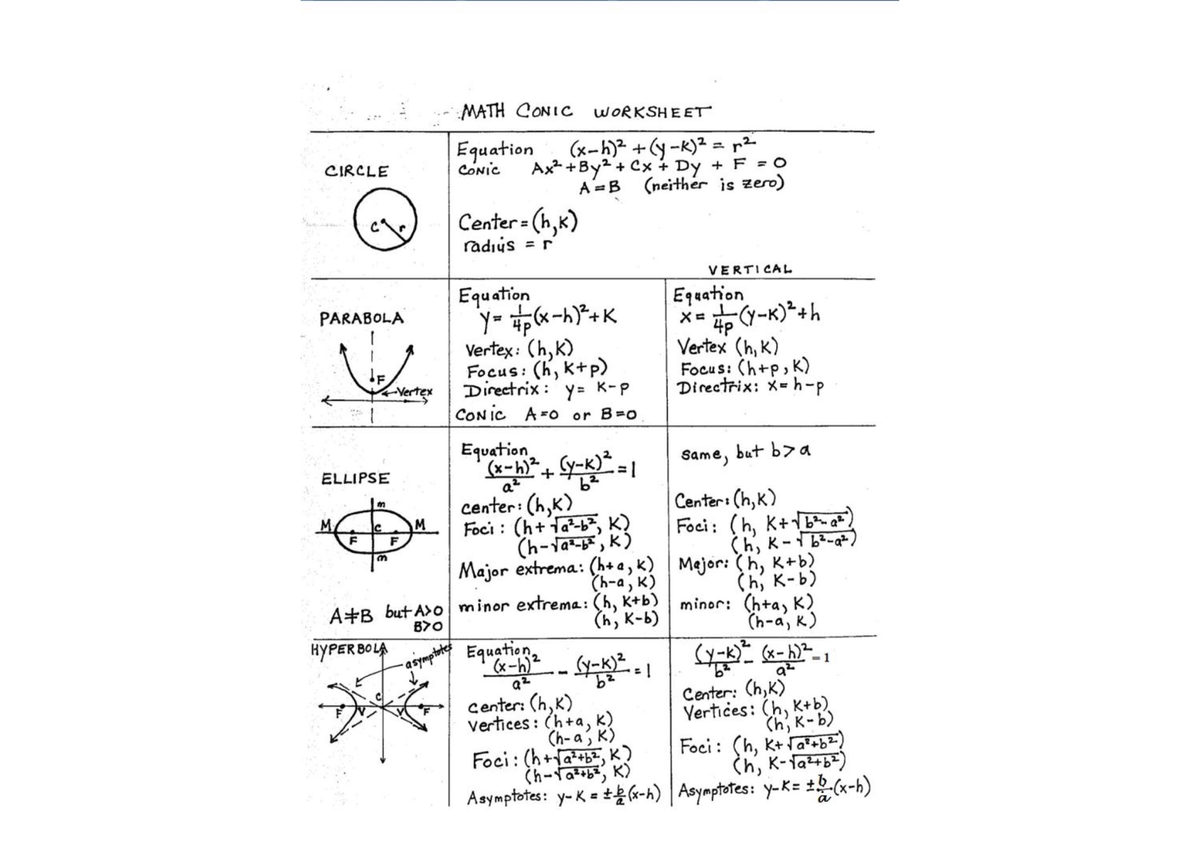 MATH CONIC WORKSHEET
CIRCLE
C r
Equation (x-h)² + (y-k)² = r²
CONIC Ax² + By² + Cx + Dy + F = 0
A = B (neither is zero)
Center = (h,k)
radius = r
VERTICAL
PARABOLA
F
Vertex
Equation
y = 1/4p (x-h)² + k
Vertex: (h,k)
Focus: (h, k+p)
Directrix: y = k-p
CONIC A=0 or B=0
Equation
x = 1/4p (y-k)² + h
Vertex (h,k)
Focus: (h+p, k)
Directrix: x = h-p
ELLIPSE
m
M C M
F F
m
A≠B but A>0
B>0
Equation
(x-h)²/a² + (y-k)²/b² = 1
center: (h,k)
Foci: (h+√a²-b², k)
(h-√a²-b², k)
Major extrema: (h+a, k)
(h-a, k)
minor extrema: (h, k+b)
(h, k-b)
same, but b>a
Center: (h,k)
Foci: (h, k+√b²-a²)
(h, k-√b²-a²)
Major: (h, k+b)
(h, k-b)
minor: (h+a, k)
(h-a, k)
HYPERBOLA
asymptotes
C
F V V F
Equation
(x-h)²/a² - (y-k)²/b² = 1
center: (h,k)
vertices: (h+a, k)
(h-a, k)
Foci: (h+√a²+b², k)
(h-√a²+b², k)
Asymptotes: y-k = ±b/a (x-h)
(y-k)²/b² - (x-h)²/a² = 1
Center: (h,k)
Vertices: (h, k+b)
(h, k-b)
Foci: (h, k+√a²+b²)
(h, k-√a²+b²)
Asymptotes: y-k = ±b/a (x-h)